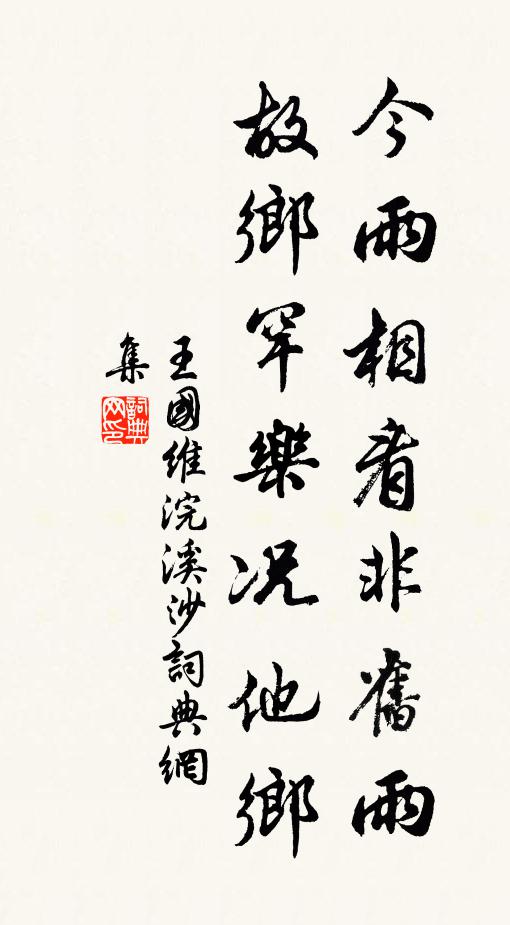 今雨相看非舊雨
故鄉罕樂况他鄉
王國維浣溪沙詞典網
集
詞典網印